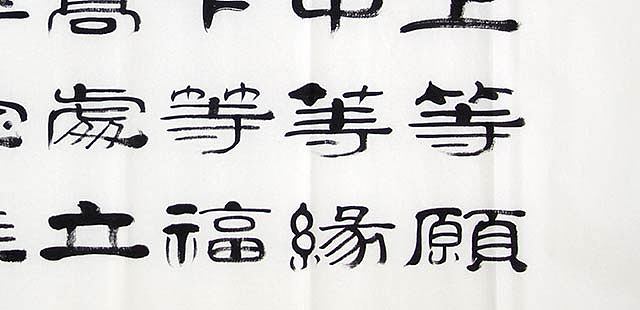 上等願
中等緣
下等福
高處立